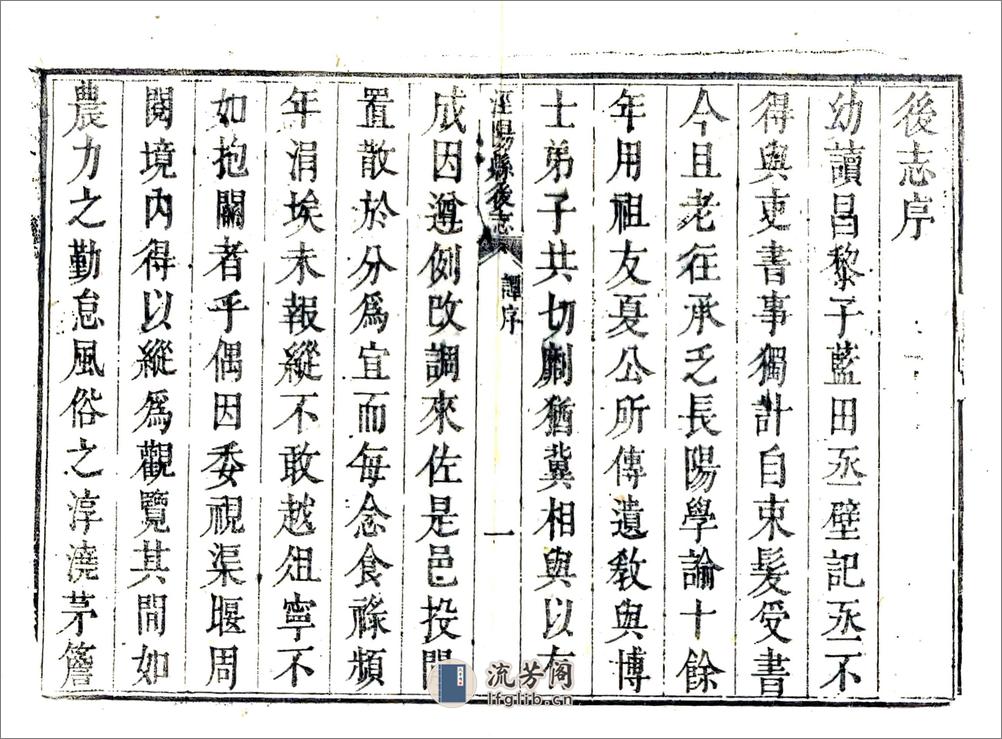 後志序
幼讀昌黎子藍田丞壁記丞不
得與吏書事獨計自束髮受書
今且老在承乏長陽學論十餘
年用祖友夏公所傳遺敎與博
士弟子共切劘猶冀相與以有
涇陽縣後志 譚序 一
成因遵例改調來佐是邑投閒
置散於分爲宜而每念食祿頻
年涓埃未報縱不敢越俎寧不
如抱關者乎偶因委視渠堰周
閱境內得以縱爲觀覽其間如
農力之勤怠風俗之淳澆茅簷
流芳阁
lfglib.cn